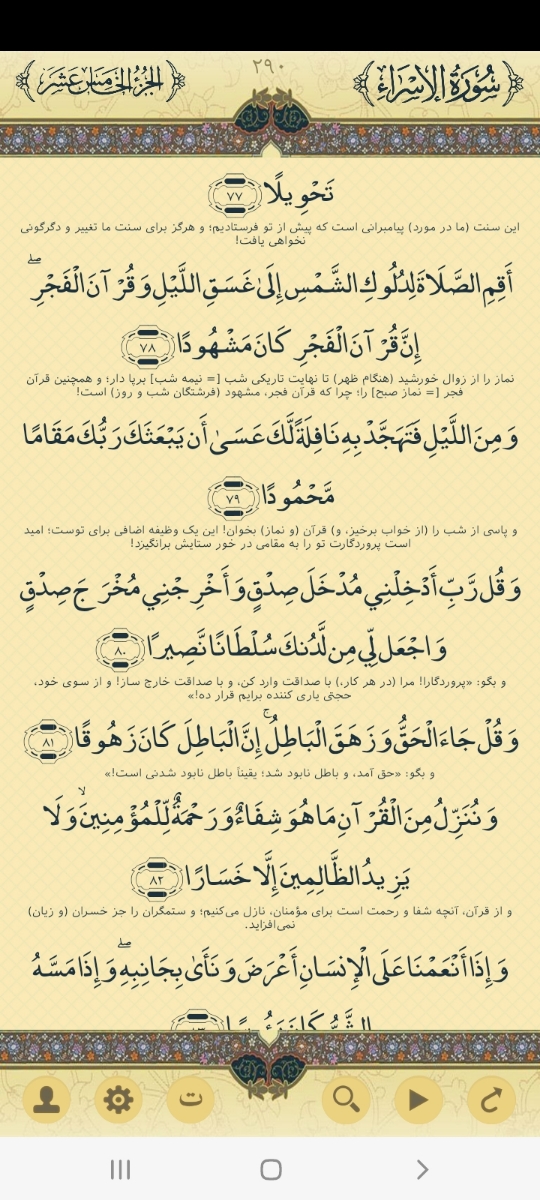 سُورَةُ الإِسْرَاءِ
٢٩٠
الجُزْءُ الخَامِسُ عَشَر
تَحْوِيلًا ٧٧
این سنت (ما در مورد) پیامبرانی است که پیش از تو فرستادیم؛ و هرگز برای سنت ما تغییر و دگرگونی
نخواهی یافت!
أَقِمِ الصَّلَاةَ لِدُلُوكِ الشَّمْسِ إِلَىٰ غَسَقِ اللَّيْلِ وَقُرْآنَ الْفَجْرِ ۖ
إِنَّ قُرْآنَ الْفَجْرِ كَانَ مَشْهُودًا ٧٨
نماز را از زوال خورشید (هنگام ظهر) تا نهایت تاریکی شب [= نیمه شب] برپا دار؛ و همچنین قرآن
فجر [= نماز صبح] را؛ چرا که قرآن فجر، مشهود (فرشتگان شب و روز) است!
وَمِنَ اللَّيْلِ فَتَهَجَّدْ بِهِ نَافِلَةً لَّكَ عَسَىٰ أَن يَبْعَثَكَ رَبُّكَ مَقَامًا
مَّحْمُودًا ٧٩
و پاسی از شب را (از خواب برخیز، و) قرآن (و نماز) بخوان! این یک وظیفه اضافی برای توست؛ امید
است پروردگارت تو را به مقامی در خور ستایش برانگیزد!
وَقُل رَّبِّ أَدْخِلْنِي مُدْخَلَ صِدْقٍ وَأَخْرِجْنِي مُخْرَجَ صِدْقٍ
وَاجْعَل لِّي مِن لَّدُنكَ سُلْطَانًا نَّصِيرًا ٨٠
و بگو: «پروردگارا! مرا (در هر کار،) با صداقت وارد کن، و با صداقت خارج ساز! و از سوی خود،
حجتی یاری کننده برایم قرار ده!»
وَقُلْ جَاءَ الْحَقُّ وَزَهَقَ الْبَاطِلُ ۚ إِنَّ الْبَاطِلَ كَانَ زَهُوقًا ٨١
و بگو: «حق آمد، و باطل نابود شد؛ یقیناً باطل نابود شدنی است!»
وَنُنَزِّلُ مِنَ الْقُرْآنِ مَا هُوَ شِفَاءٌ وَرَحْمَةٌ لِّلْمُؤْمِنِينَ ۙ وَلَا
يَزِيدُ الظَّالِمِينَ إِلَّا خَسَارًا ٨٢
و از قرآن، آنچه شفا و رحمت است برای مؤمنان، نازل می‌کنیم؛ و ستمگران را جز خسران (و زیان)
نمی‌افزاید.
وَإِذَا أَنْعَمْنَا عَلَى الْإِنسَانِ أَعْرَضَ وَنَأَىٰ بِجَانِبِهِ ۖ وَإِذَا مَسَّهُ
ت